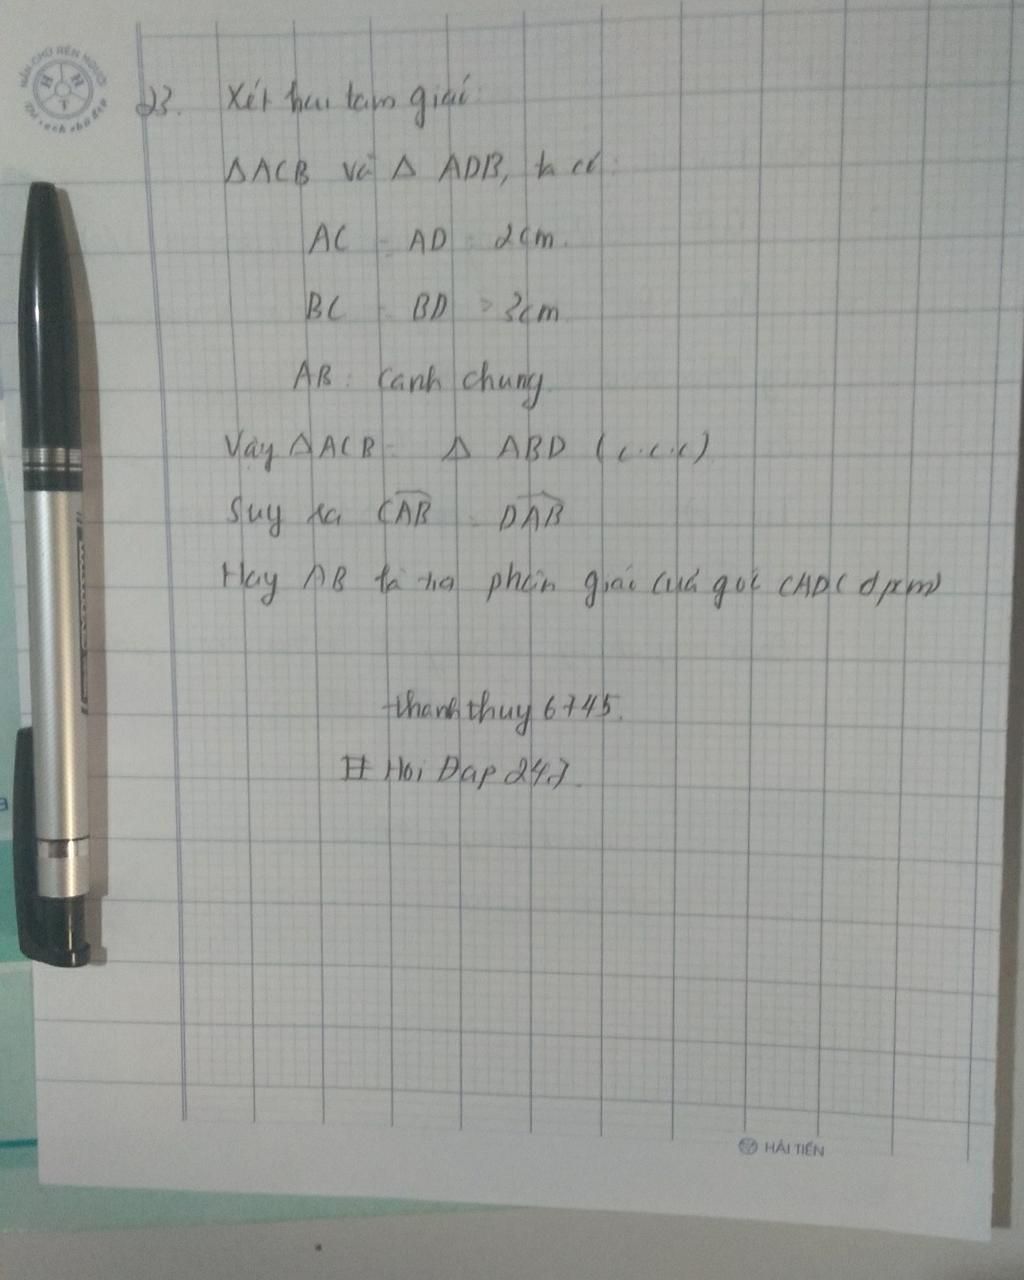 NÂN CHỮ RÈN NGƯỜI
H N T
23. Xét hai tam giác:
ΔACB và Δ ADB, ta có:
AC = AD = 2cm.
BC = BD = 3cm
AB: cạnh chung
Vậy ΔACB = Δ ABD (c.c.c)
Suy ra CAB = DAB
Hay AB là tia phân giác của góc CAD (đpcm)
thanhthuy 6745.
# Hoi Dap 247.
HẢI TIẾN